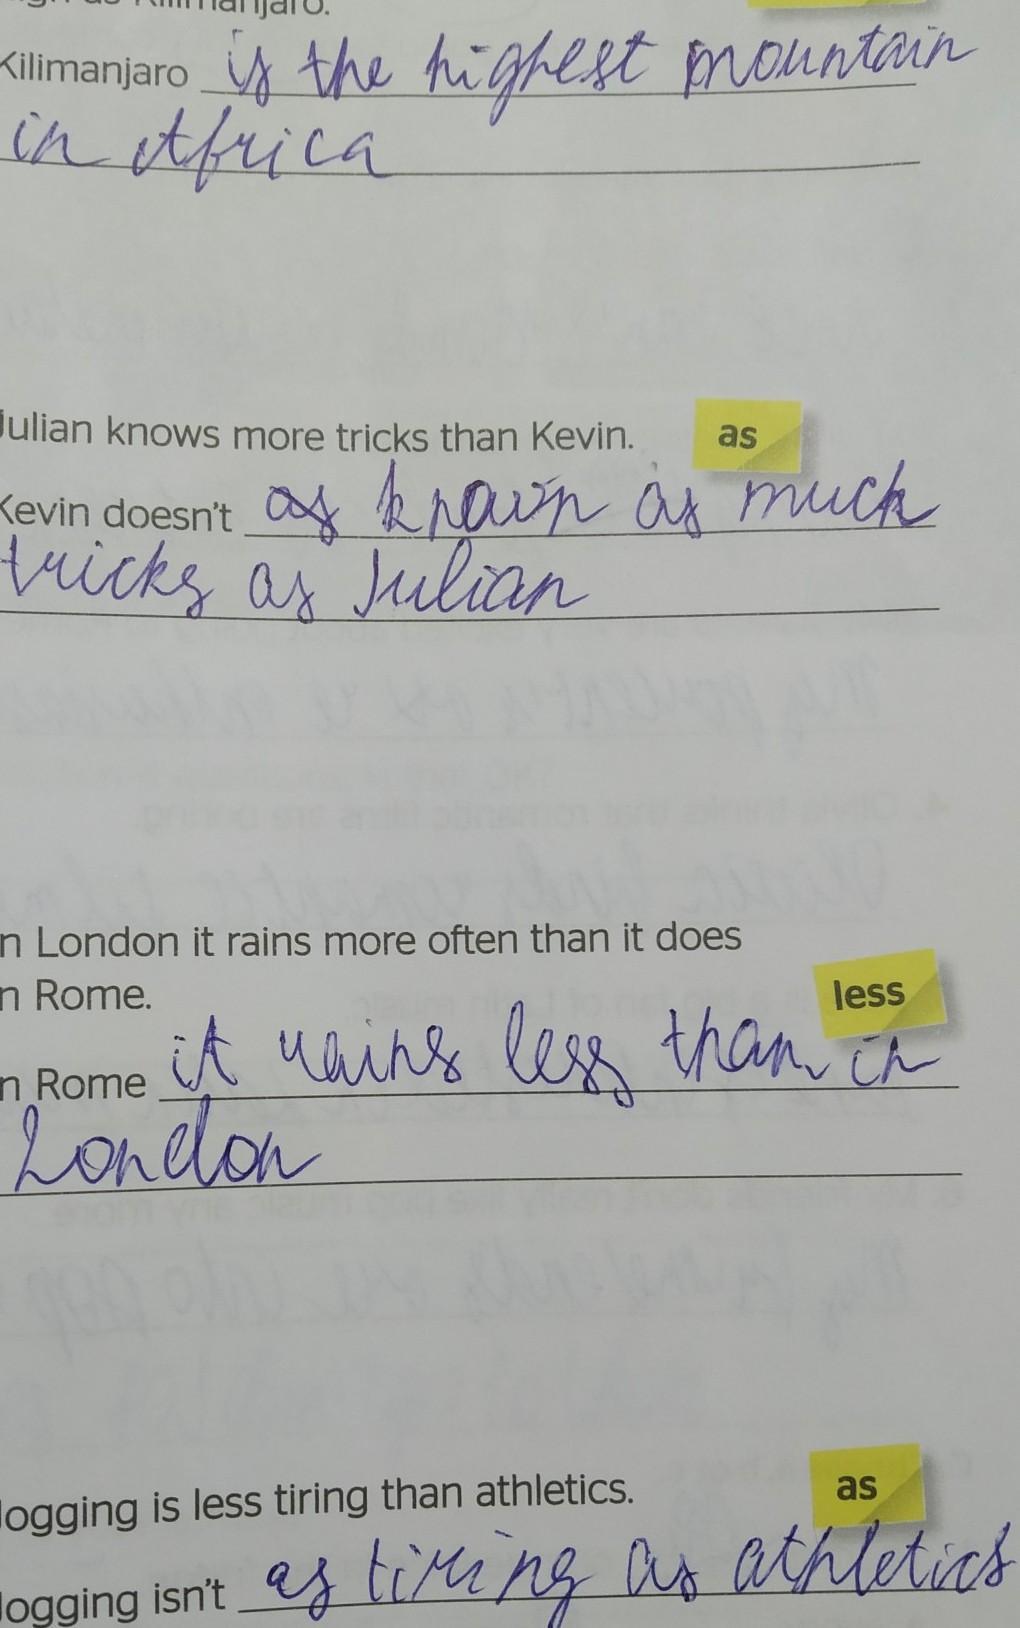 Kilimanjaro.
Kilimanjaro is the highest mountain
in Africa
Julian knows more tricks than Kevin. as
Kevin doesn't as known as much
tricks as Julian
n London it rains more often than it does
n Rome. less
n Rome it rains less than in
London
Jogging is less tiring than athletics. as
Jogging isn't as tiring as athletics